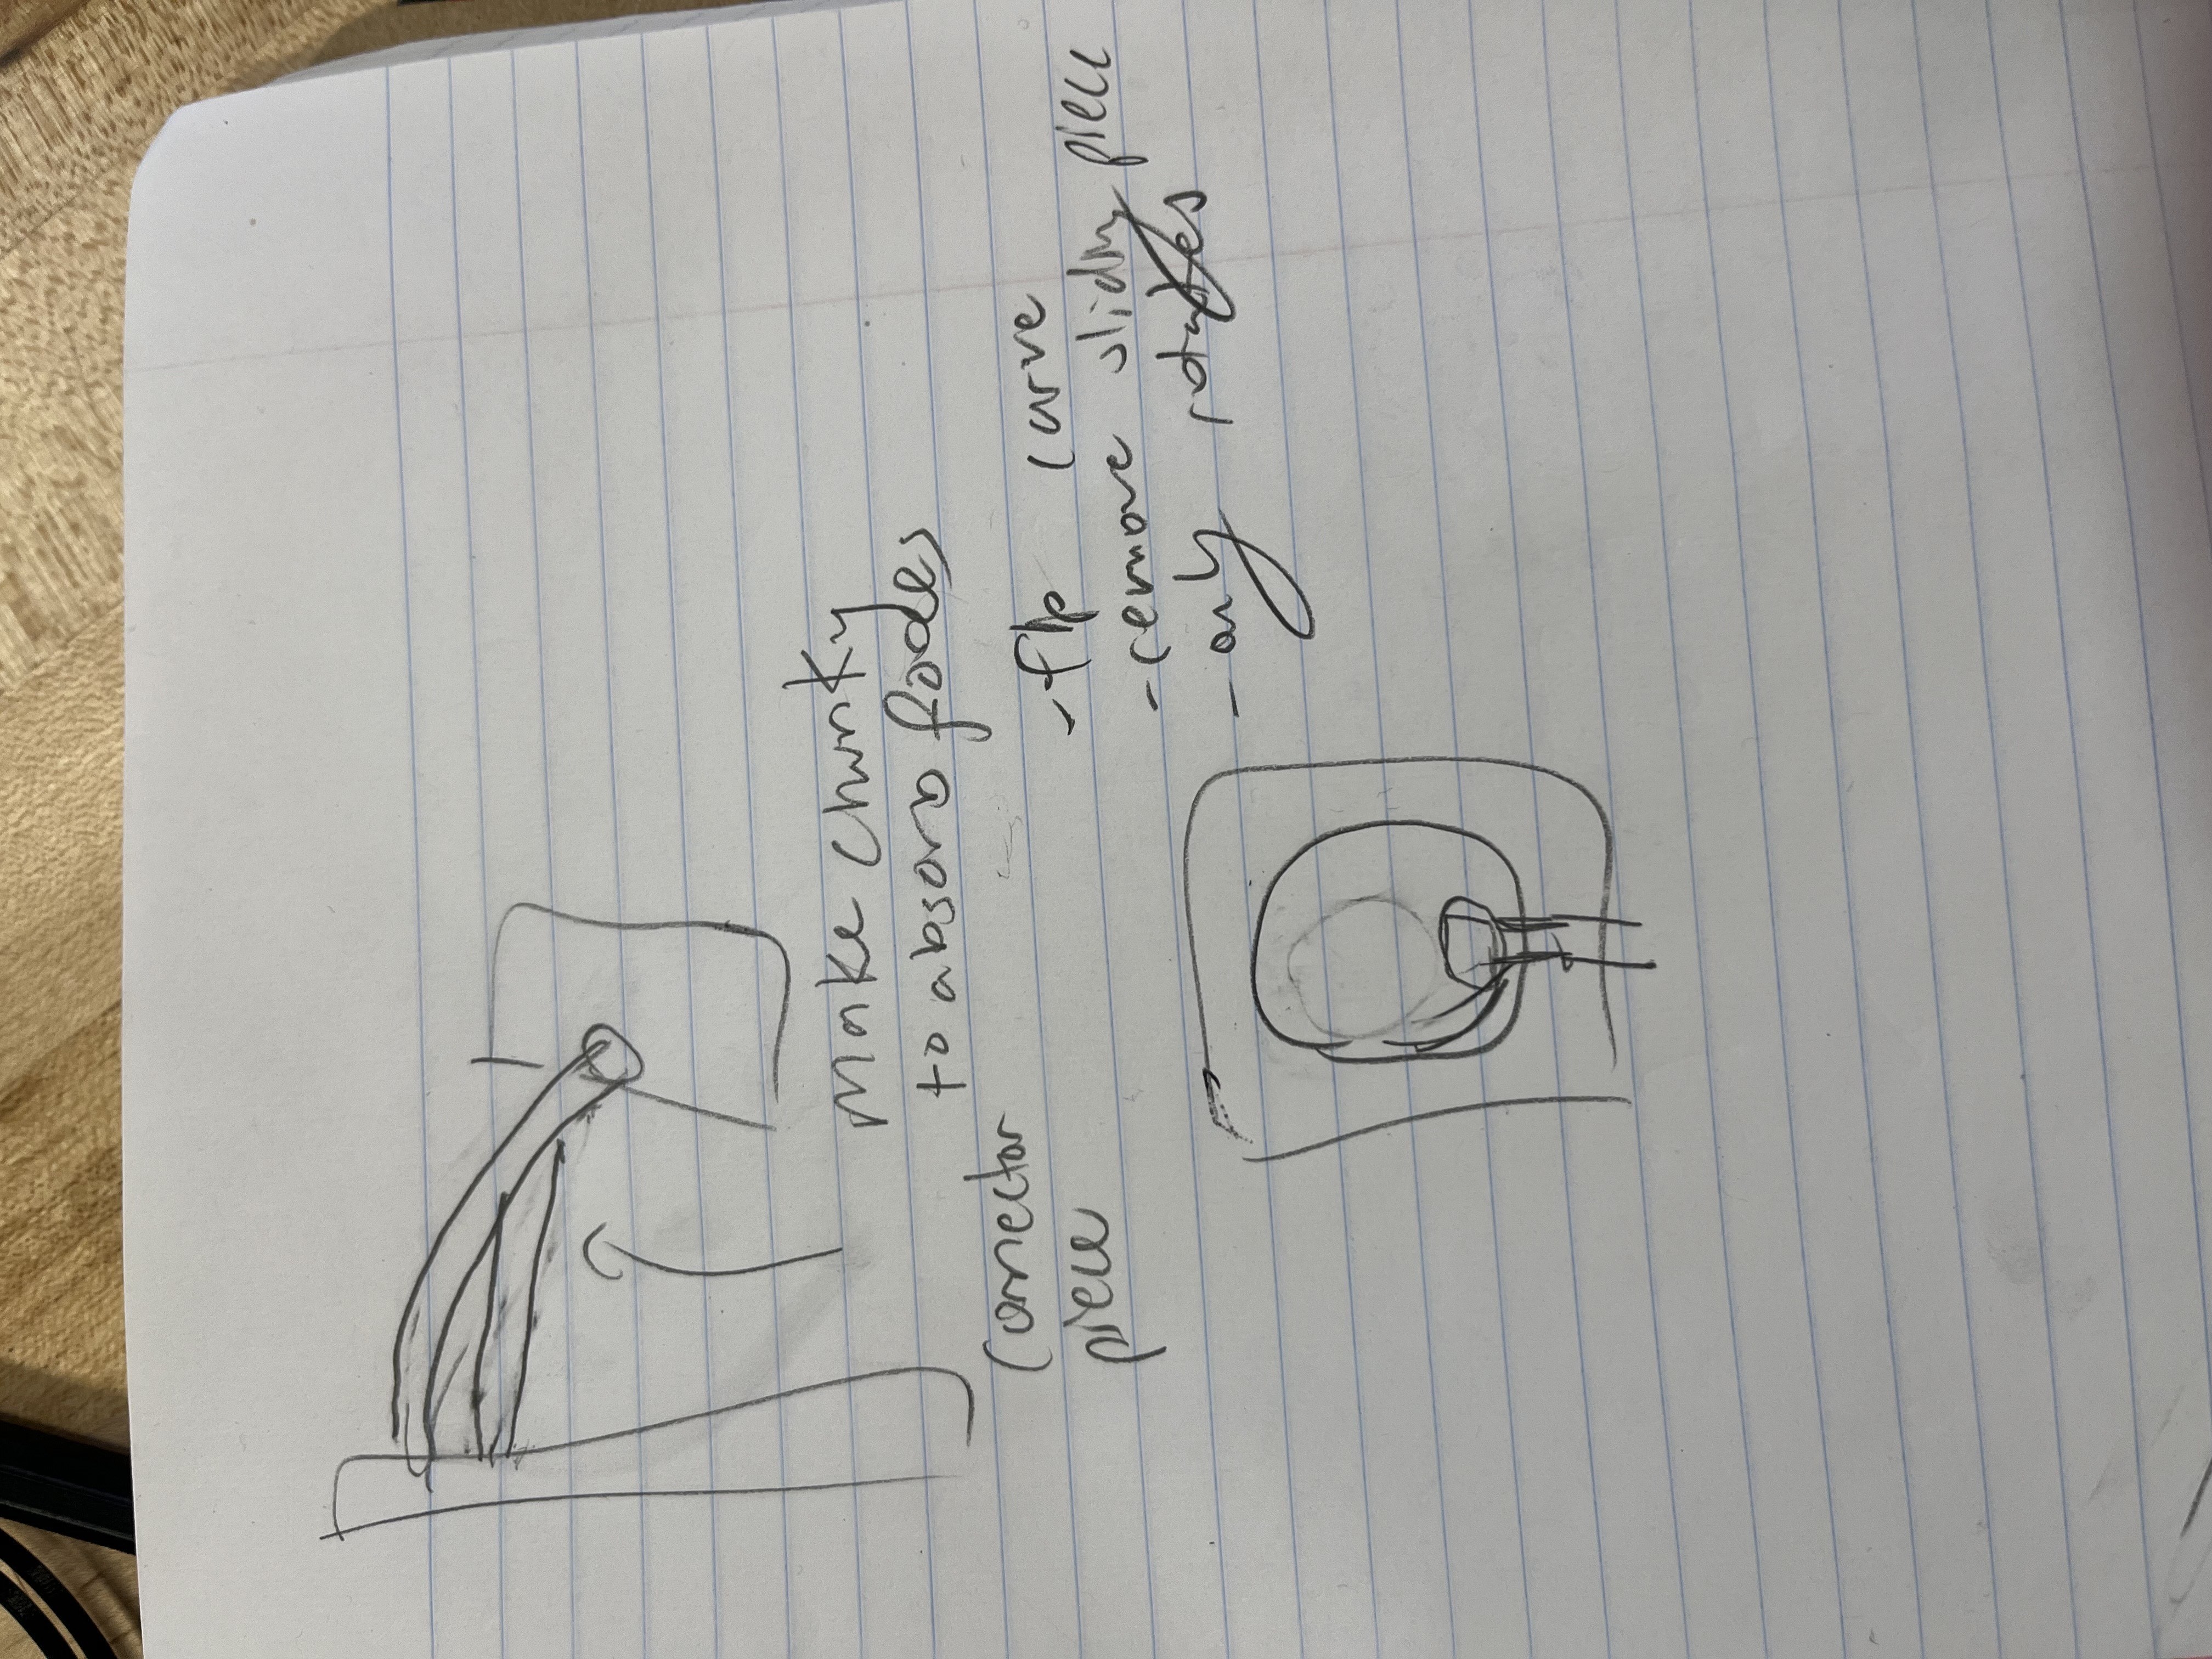 Make chunky
to absorb forces
Connector
piece
- flip curve
- remove sliding piece
- only rotates